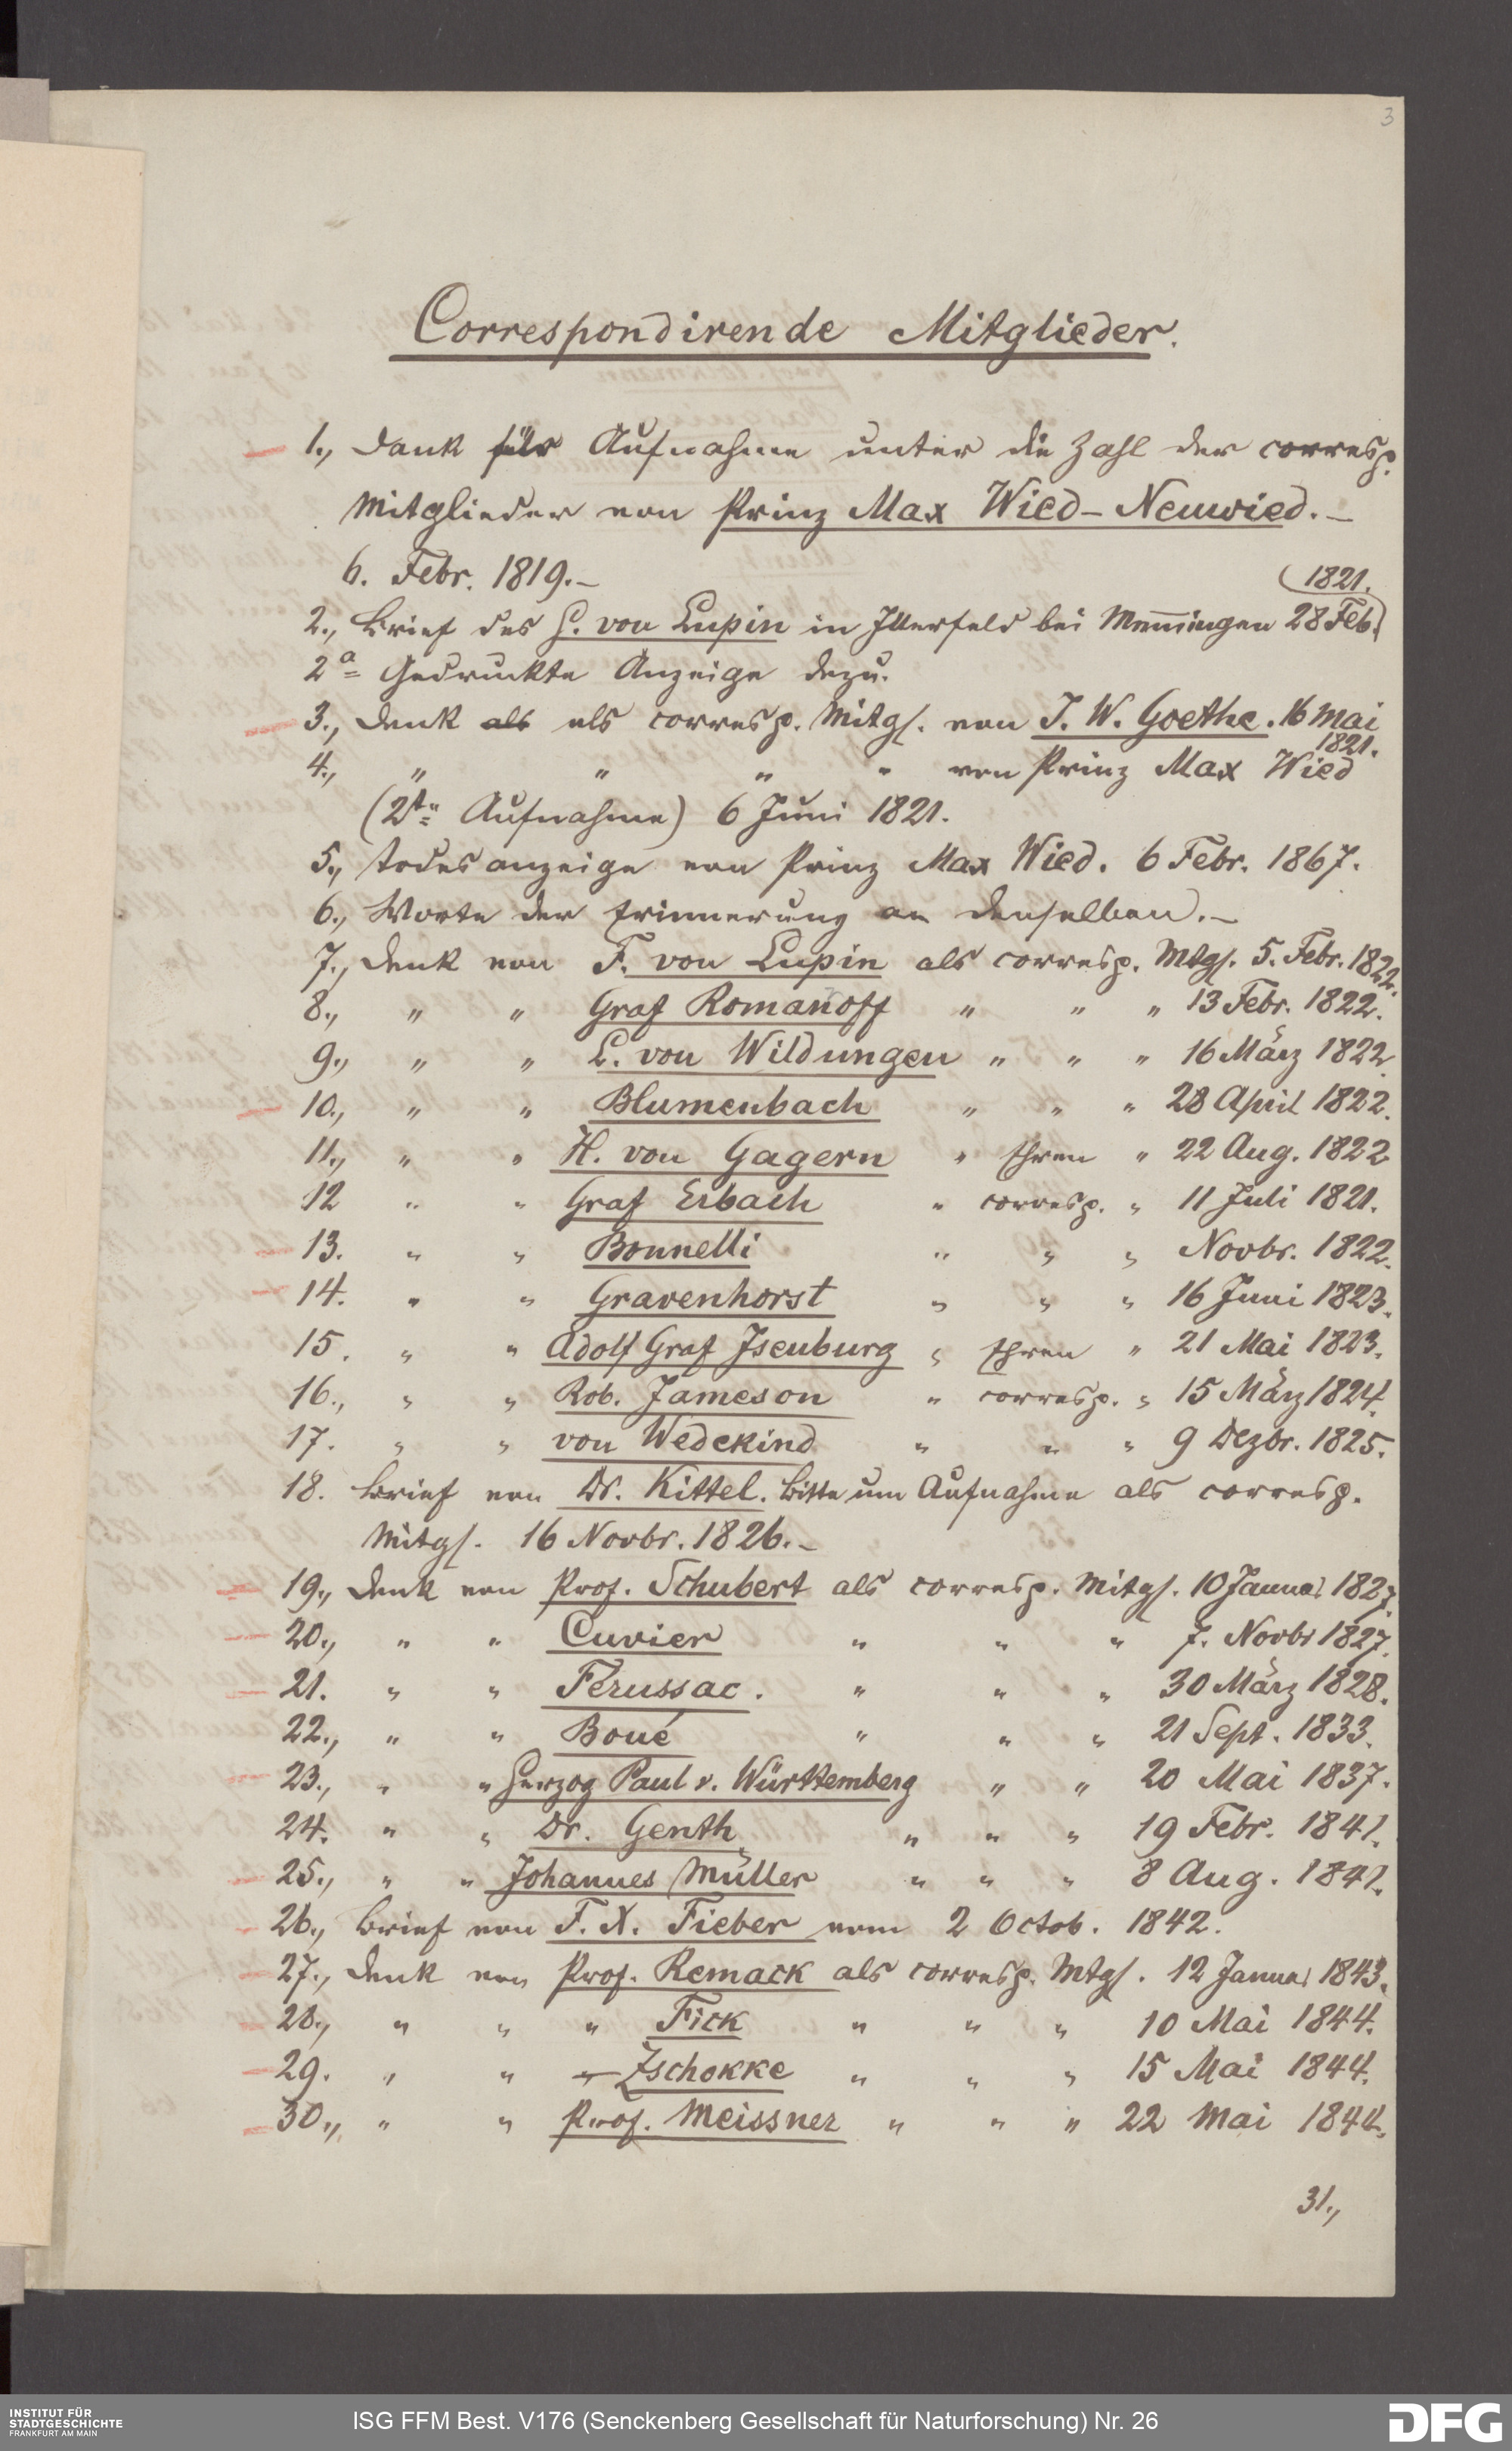 3
Correspondirende Mitglieder.
1., Dank für Aufnahme unter die Zahl der corresp.
Mitglieder von Prinz Max Wied-Neuwied.-
6. Febr. 1819.-
1821.
2., Brief des H. von Lupin in Illerfeld bei Memingen 28 Feb.
2a Gedruckte Anzeige dazu.
3., Dank als als corresp. Mitgl. von J. W. Goethe. 16 Mai
1821.
4., " " " " von Prinz Max Wied
(2te Aufnahme) 6 Juni 1821.
5., Todesanzeige von Prinz Max Wied. 6 Febr. 1867.
6., Worte der Erinnerung an denselben.-
7., Dank von F. von Lupin als corresp. Mtgl. 5. Febr. 1822.
8., " " Graf Romanoff " " " 13 Febr. 1822.
9., " " L. von Wildungen " " " 16 März 1822.
10., " " Blumenbach " " " 28 April 1822.
11., " " H. von Gagern " Ehren " 22 Aug. 1822
12 " " Graf Erbach " corresp. " 11 Juli 1821.
13. " " Bonnelli " " " Novbr. 1822.
14. " " Gravenhorst " " " 16 Juni 1823.
15. " " Adolf Graf Isenburg " Ehren " 21 Mai 1823.
16., " " Rob. Jameson " corresp. " 15 März 1824.
17. " " von Wedekind " " " 9 Dezbr. 1825.
18. Brief von Dr. Kittel. Bitte um Aufnahme als corresp.
Mitgl. 16 Novbr. 1826.-
19., Dank von Prof. Schubert als corresp. Mitgl. 10 Januar 1827.
20., " " Cuvier " " " 7. Novbr 1827.
21. " " Ferussac. " " " 30 März 1828.
22., " " Boué " " " 21 Sept. 1833.
23., " " Herzog Paul v. Württemberg " " 20 Mai 1837.
24. " " Dr. Genth " " " 19 Febr. 1841.
25., " " Johannes Müller " " " 8 Aug. 1841.
26., Brief von F. X. Fieber vom 2 Octob. 1842.
27., Dank von Prof. Remack als corresp. Mtgl. 12 Januar 1843.
28., " " " Fick " " " 10 Mai 1844.
29. " " " Zschokke " " " 15 Mai 1844.
30., " " Prof. Meissner " " " 22 Mai 1844.
31.,
INSTITUT FÜR
STADTGESCHICHTE
FRANKFURT AM MAIN
ISG FFM Best. V176 (Senckenberg Gesellschaft für Naturforschung) Nr. 26
DFG